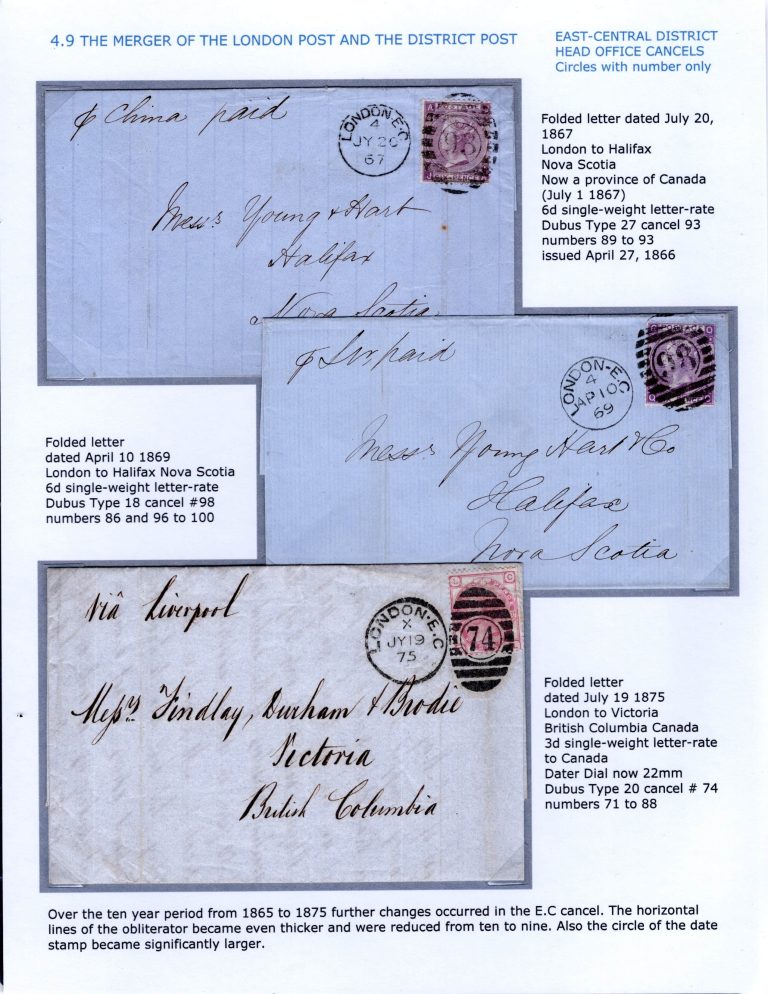 4.9 THE MERGER OF THE LONDON POST AND THE DISTRICT POST
EAST-CENTRAL DISTRICT
HEAD OFFICE CANCELS
Circles with number only
China paid
LONDON·E.C
4
JY 20
67
Messrs Young & Hart
Halifax
Nova Scotia
Folded letter dated July 20,
1867
London to Halifax
Nova Scotia
Now a province of Canada
(July 1 1867)
6d single-weight letter-rate
Dubus Type 27 cancel 93
numbers 89 to 93
issued April 27, 1866
paid
LONDON-E.C
4
AP 10
69
98
Messrs Young Hart & Co
Halifax
Nova Scotia
Folded letter
dated April 10 1869
London to Halifax Nova Scotia
6d single-weight letter-rate
Dubus Type 18 cancel #98
numbers 86 and 96 to 100
Viâ Liverpool
LONDON·E.C
X
JY 19
75
74
Messrs Findlay, Durham & Brodie
Victoria
British Columbia
Folded letter
dated July 19 1875
London to Victoria
British Columbia Canada
3d single-weight letter-rate
to Canada
Dater Dial now 22mm
Dubus Type 20 cancel # 74
numbers 71 to 88
Over the ten year period from 1865 to 1875 further changes occurred in the E.C cancel. The horizontal
lines of the obliterator became even thicker and were reduced from ten to nine. Also the circle of the date
stamp became significantly larger.